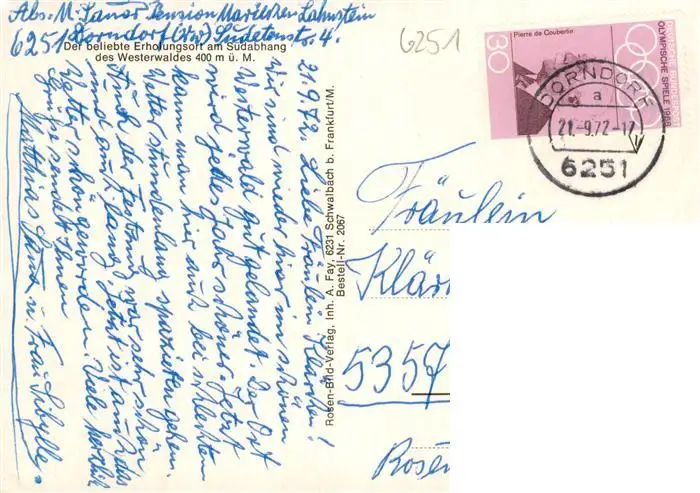 Abs. M. Sauer Pension Marlies en Lahnstein
6251 Dorndorf (Ww) Sudetenstr. 4.
Der beliebte Erholungsort am Südabhang
des Westerwaldes 400 m ü. M.
6251
Pierre de Coubertin
30
DEUTSCHE BUNDESPOST
OLYMPISCHE SPIELE 1968
DORNDORF
a
21.-9.72-17
6251
21.9.72. Liebe Fräulein Klärchen!
Wir sind wieder hier im schönen
Westerwald gut gelandet. Der Ort
wird jedes Jahr schöner. Jetzt
kann man hier auch bei schlechtem
Wetter stundenlang spazieren gehen.
Auch der Festtag war sehr schön
und amüsant. Jetzt ist auch das
Wetter schön geworden. Viele herzliche
Grüße sendet Ihnen
Matthias und Frau Sibylle.
Rosen-Bild-Verlag, Inh. A. Fay, 6231 Schwalbach b. Frankfurt/M.
Bestell-Nr. 2067
Fräulein
Klär
5357
Rosen